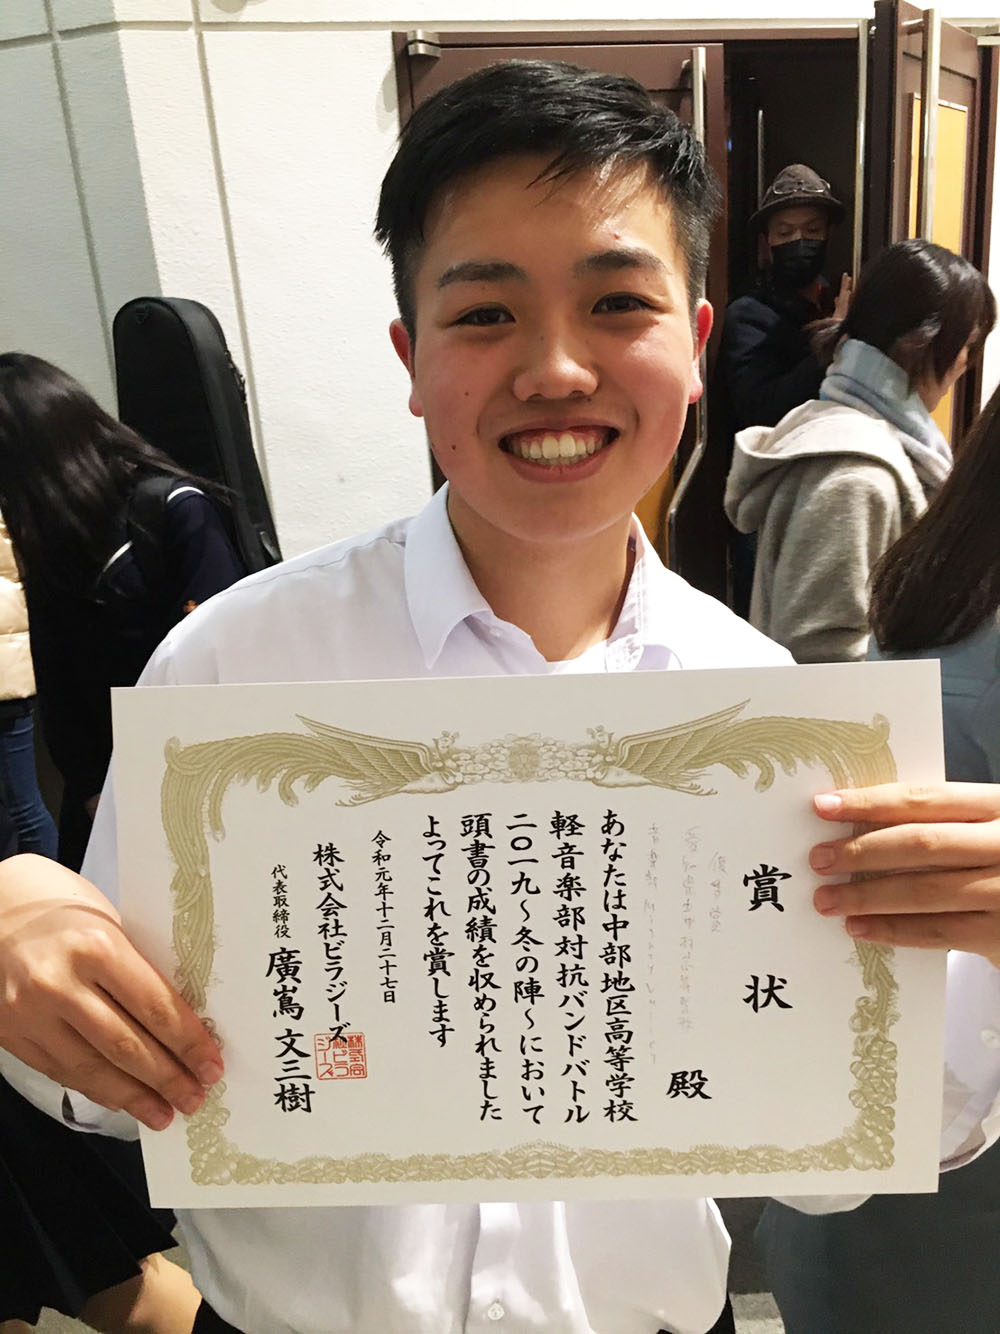 賞状
優秀賞
殿
あなたは中部地区高等学校
軽音楽部対抗バンドバトル
二〇一九～冬の陣～において
頭書の成績を収められました
よってこれを賞します
令和元年十二月二十七日
株式会社ビラジーズ
代表取締役 廣嶌文三樹
株式会社ビラジーズ